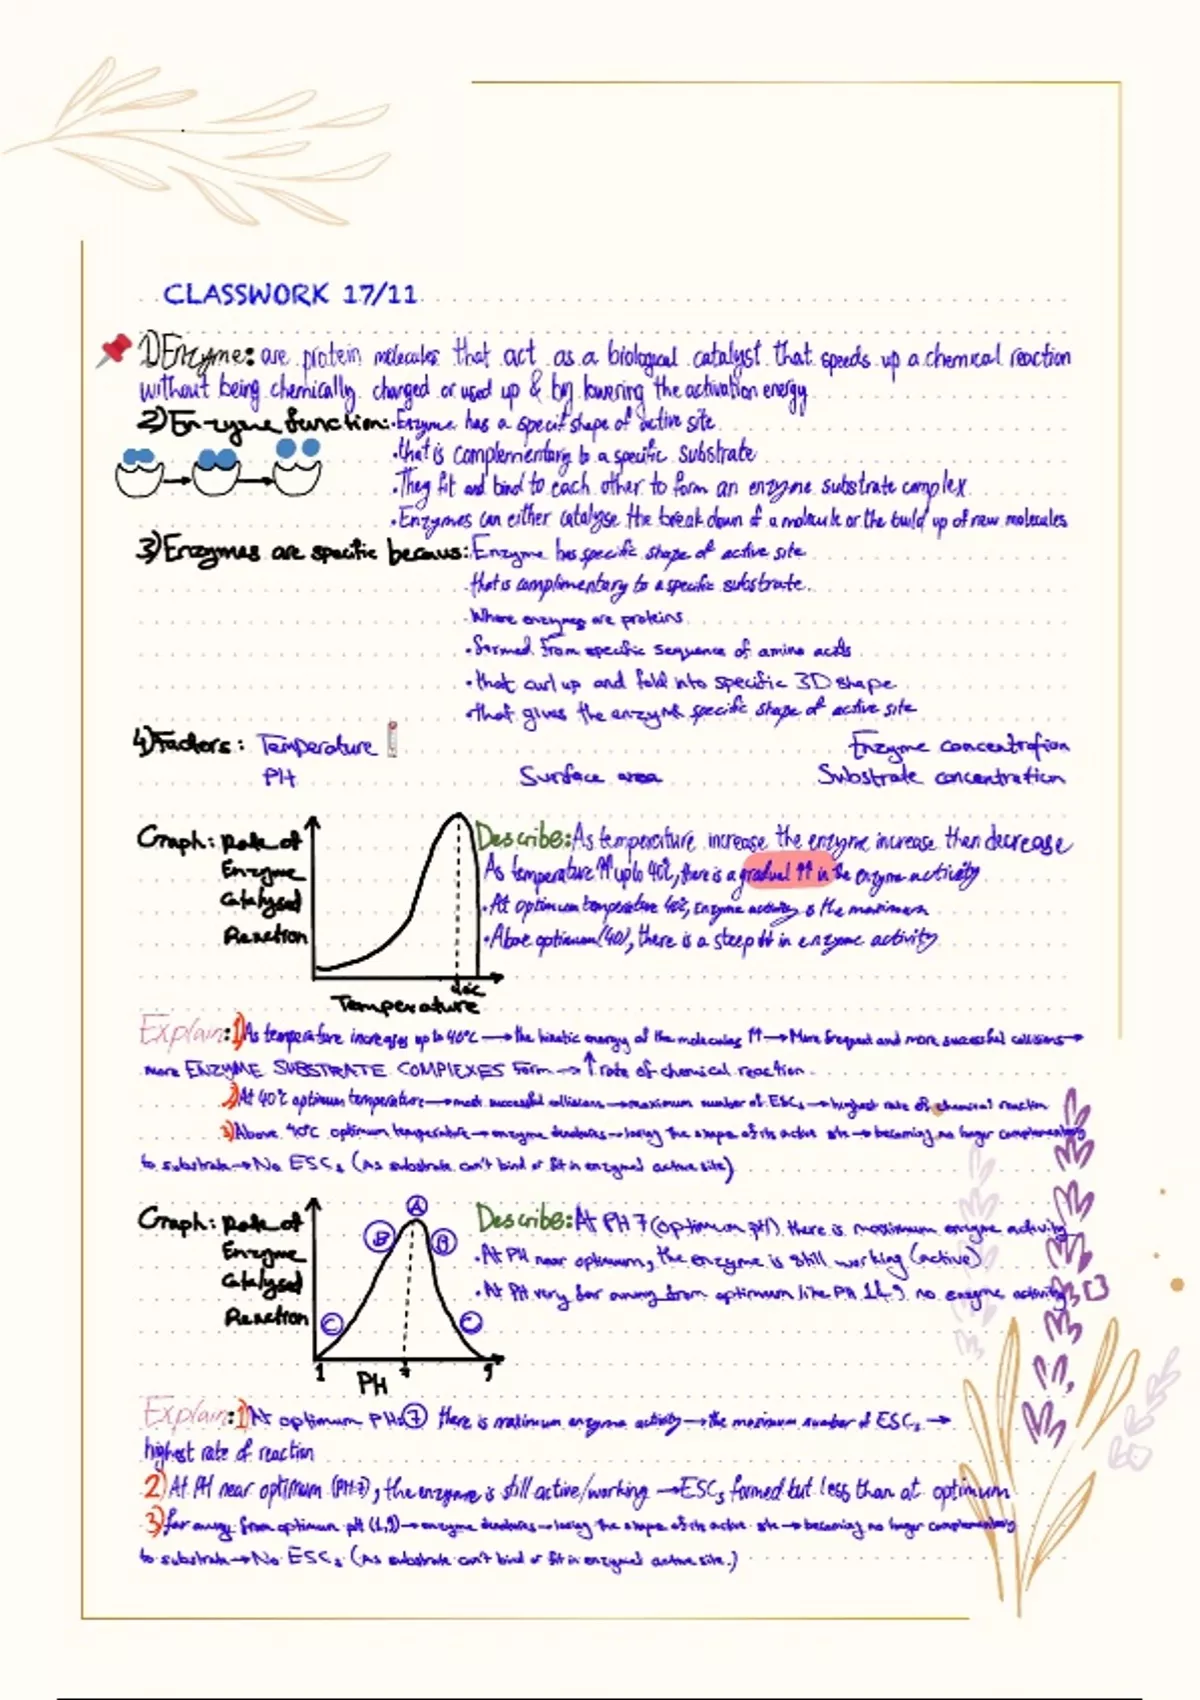 CLASSWORK 17/11
1) Enzyme: are protein molecules that act as a biological catalyst that speeds up a chemical reaction
without being chemically changed or used up & by lowering the activation energy
2) Enzyme function: • Enzyme has a specif shape of active site
• that is complementary to a specific substrate
• They fit and bind to each other to form an enzyme substrate complex
• Enzymes can either catalyse the break down of a molecule or the build up of new molecules
3) Enzymes are specific becaus: Enzyme has specific shape of active site
that is complimentary to a specific substrate.
Where enzymes are proteins
• formed from specific sequence of amino acids
• that curl up and fold into specific 3D shape
• That gives the enzyme specific shape of active site
4) Factors: Temperature Enzyme concentration
PH Surface area Substrate concentration
Graph: Rate of Enzyme Catalysed Reaction
Temperature
Describe: As temperature increase the enzyme increase then decrease
As temperature ↑↑ up to 40c, there is a gradual ↑↑ in the enzyme activity
• At optimum temperature 40c, enzyme activity is the maximum
• Above optimum (40), there is a steep ↓↓ in enzyme activity
Explain: 1) As temperature increases up to 40°C → the kinetic energy of the molecules ↑↑ → More frequent and more successful collisions →
more ENZYME SUBSTRATE COMPLEXES Form → ↑ rate of chemical reaction.
2) At 40°C optimum temperature → most successful collisions → maximum number of ESCs → highest rate of chemical reaction
3) Above 40°C optimum temperature → enzyme denatures → losing the shape of its active site → becoming no longer complementary
to substrate → No ESCs (As substrate can't bind or fit in enzymes' active site)
Graph: Rate of Enzyme Catalysed Reaction
A
B B
C C
1 7 9
PH
Describe: At PH 7 (optimum pH) there is maximum enzyme activity
• At PH near optimum, the enzyme is still working (active)
• At PH very far away from optimum like PH 1&9 no enzyme activity
Explain: 1) At optimum PH=7 there is maximum enzyme activity → the maximum number of ESCs →
highest rate of reaction
2) At PH near optimum (PH=7), the enzyme is still active/working → ESCs formed but less than at optimum
3) far away from optimum pH (1,9) → enzyme denatures → losing the shape of its active site → becoming no longer complementary
to substrate → No ESCs (As substrate can't bind or fit in enzymes' active site.)